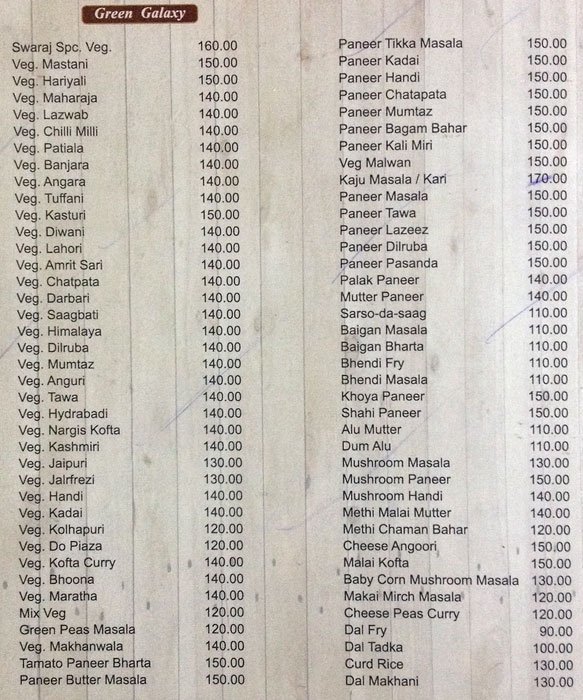 Green Galaxy
Swaraj Spc. Veg. 160.00
Veg. Mastani 150.00
Veg. Hariyali 150.00
Veg. Maharaja 140.00
Veg. Lazwab 140.00
Veg. Chilli Milli 140.00
Veg. Patiala 140.00
Veg. Banjara 140.00
Veg. Angara 140.00
Veg. Tuffani 140.00
Veg. Kasturi 150.00
Veg. Diwani 140.00
Veg. Lahori 140.00
Veg. Amrit Sari 140.00
Veg. Chatpata 140.00
Veg. Darbari 140.00
Veg. Saagbati 140.00
Veg. Himalaya 140.00
Veg. Dilruba 140.00
Veg. Mumtaz 140.00
Veg. Anguri 140.00
Veg. Tawa 140.00
Veg. Hydrabadi 140.00
Veg. Nargis Kofta 140.00
Veg. Kashmiri 140.00
Veg. Jaipuri 130.00
Veg. Jalrfrezi 130.00
Veg. Handi 140.00
Veg. Kadai 140.00
Veg. Kolhapuri 120.00
Veg. Do Piaza 120.00
Veg. Kofta Curry 140.00
Veg. Bhoona 140.00
Veg. Maratha 140.00
Mix Veg 120.00
Green Peas Masala 120.00
Veg. Makhanwala 140.00
Tamato Paneer Bharta 150.00
Paneer Butter Masala 150.00
Paneer Tikka Masala 150.00
Paneer Kadai 150.00
Paneer Handi 150.00
Paneer Chatapata 150.00
Paneer Mumtaz 150.00
Paneer Bagam Bahar 150.00
Paneer Kali Miri 150.00
Veg Malwan 150.00
Kaju Masala / Kari 170.00
Paneer Masala 150.00
Paneer Tawa 150.00
Paneer Lazeez 150.00
Paneer Dilruba 150.00
Paneer Pasanda 150.00
Palak Paneer 140.00
Mutter Paneer 140.00
Sarso-da-saag 110.00
Baigan Masala 110.00
Baigan Bharta 110.00
Bhendi Fry 110.00
Bhendi Masala 110.00
Khoya Paneer 150.00
Shahi Paneer 150.00
Alu Mutter 110.00
Dum Alu 110.00
Mushroom Masala 130.00
Mushroom Paneer 150.00
Mushroom Handi 140.00
Methi Malai Mutter 140.00
Methi Chaman Bahar 120.00
Cheese Angoori 150.00
Malai Kofta 150.00
Baby Corn Mushroom Masala 130.00
Makai Mirch Masala 120.00
Cheese Peas Curry 120.00
Dal Fry 90.00
Dal Tadka 100.00
Curd Rice 130.00
Dal Makhani 130.00